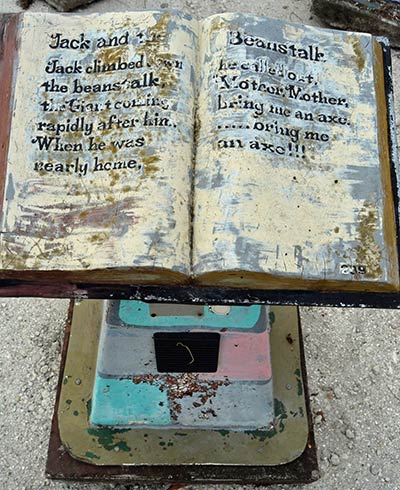 Jack and the
Jack climbed down
the beanstalk,
the Giant coming
rapidly after him..
When he was
nearly home,
Beanstalk
he called out,
"Mother, Mother,
bring me an axe
......bring me
an axe!!!